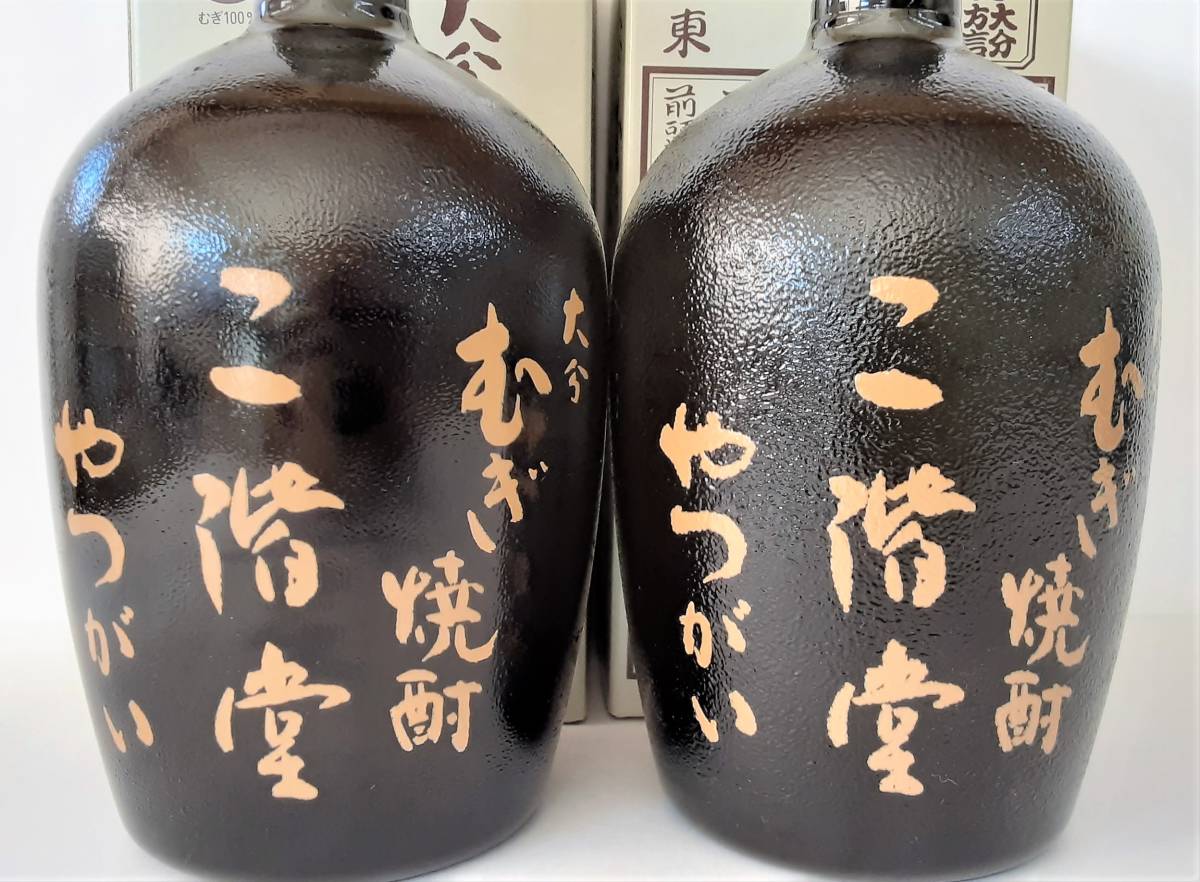 むぎ100%
大分
東
前頭
大分
方言
大分
むぎ焼酎
二階堂
やつがい
むぎ焼酎
二階堂
やつがい